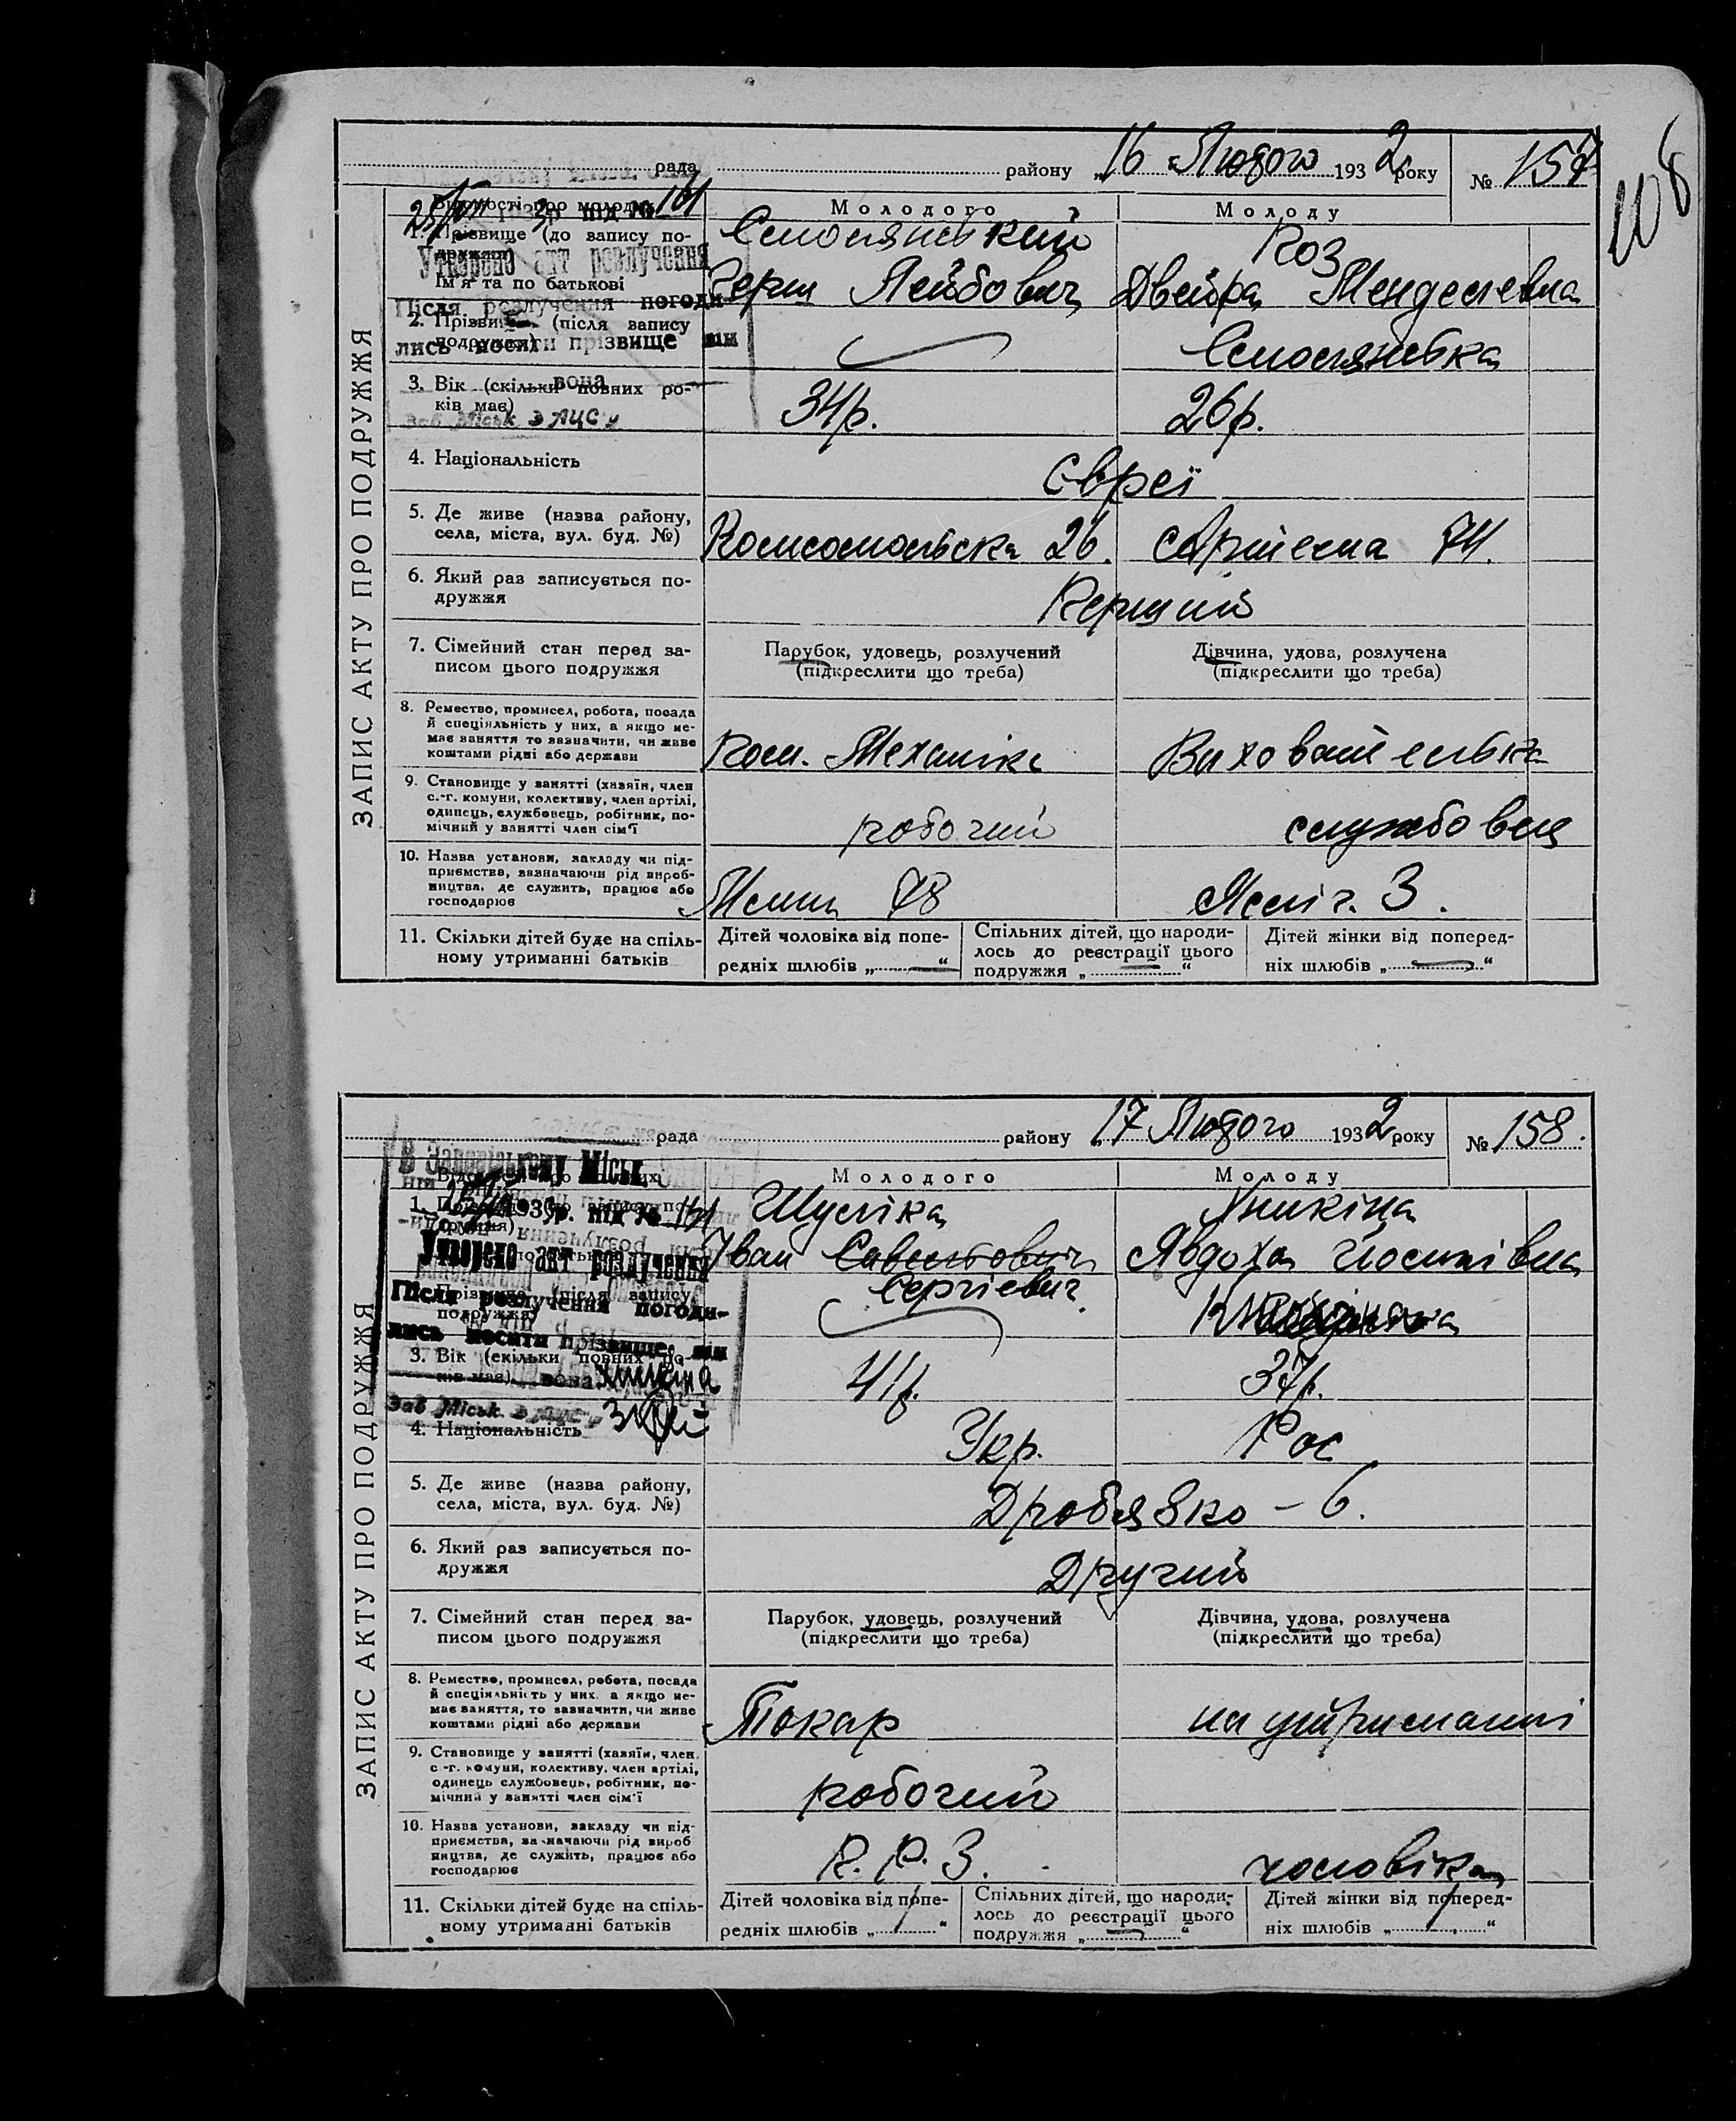 108
рада района „16 Лютого 1932 року № 157
Відомості про молодих
Молодого Молоду
1. Прізвище (до запису подружжя)
Смолянський Коз
Ім'я та по батькові
Герш Лейбович Двейра Менделевна
2. Прізвище (після запису подружжя)
Смолянська
3. Вік (скільки повних ро-
ків має)
34р. 26р.
4. Національність
Євреї
5. Де живе (назва району,
села, міста, вул. буд. №)
Комсомольска 26. Артема 74.
6. Який раз записується по-
дружжя
Перший
7. Сімейний стан перед за-
писом цього подружжя
Парубок, удовець, розлучений
(підкреслити що треба)
Дівчина, удова, розлучена
(підкреслити що треба)
8. Ремество, промисел, робота, посада
й спеціяльність у них, а якщо не-
має заняття то зазначити, чи живе
коштами рідні або держави
Механік Вихователька
9. Становище у занятті (хазяїн, член
с.-г. комуни, колективу, член артілі,
одинець, службовець, робітник, по-
мічний у занятті член сім'ї
робочий службовец
10. Назва установи, закладу чи під-
приємства, зазначаючи рід вироб-
ництва, де служить, працює або
господарює
78 3.
11. Скільки дітей буде на спіль-
ному утриманні батьків
Дітей чоловіка від попе-
редніх шлюбів „ — “
Спільних дітей, що народи-
лось до реєстрації цього
подружжя „ — “
Дітей жінки від поперед-
ніх шлюбів „ — “
ЗАПИС АКТУ ПРО ПОДРУЖЖЯ
Утворено акт розлучення
Після розлучення погоди-
лись носити прізвище він
вона
Зав Міськ ЗАЦС'у
рада району „17 Лютого 1932 року № 158.
Молодого Молоду
Шуліка Аникіна
Іван Савельтович Явдоха Йосипівна
Сергієвич
41р. 37р.
4. Національність
Укр. Рос
5. Де живе (назва району,
села, міста, вул. буд. №)
Дробязко – 6.
6. Який раз записується по-
дружжя
Другий
7. Сімейний стан перед за-
писом цього подружжя
Парубок, удовець, розлучений
(підкреслити що треба)
Дівчина, удова, розлучена
(підкреслити що треба)
8. Ремество, промисел, робота, посада
й спеціяльність у них, а якщо не-
має заняття, то зазначити, чи живе
коштами рідні або держави
Токар на утриманні
9. Становище у занятті (хазяїн, член
с.-г. комуни, колективу, член артілі,
одинець службовець, робітник, по-
мічний у занятті член сім'ї
робочий
10. Назва установи, закладу чи під-
приємства, зазначаючи рід вироб
ництва, де служить, працює або
господарює
К.Р.З. чоловіка
11. Скільки дітей буде на спіль-
ному утриманні батьків
Дітей чоловіка від попе-
редніх шлюбів „ 1 “
Спільних дітей, що народи-
лось до реєстрації цього
подружжя „ — “
Дітей жінки від поперед-
ніх шлюбів „ 1 “
ЗАПИС АКТУ ПРО ПОДРУЖЖЯ
Міськ
193 р. під № 161
Утворено акт розлучення
Після розлучення погоди-
лись носити прізвище: він
вона
Зав Міськ ЗАЦС'у